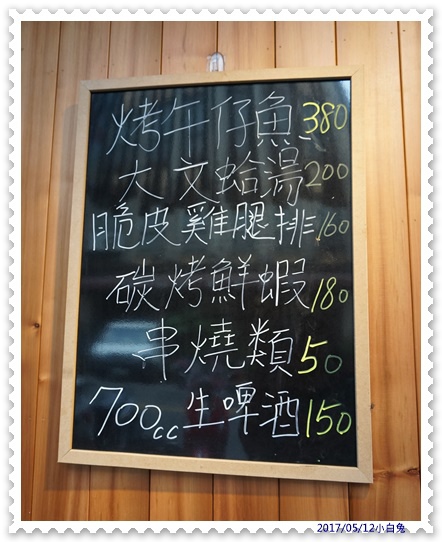 烤午仔魚380
大文蛤湯200
脆皮雞腿排160
碳烤鮮蝦180
串燒類50
700cc生啤酒150
2017/05/12小白兔